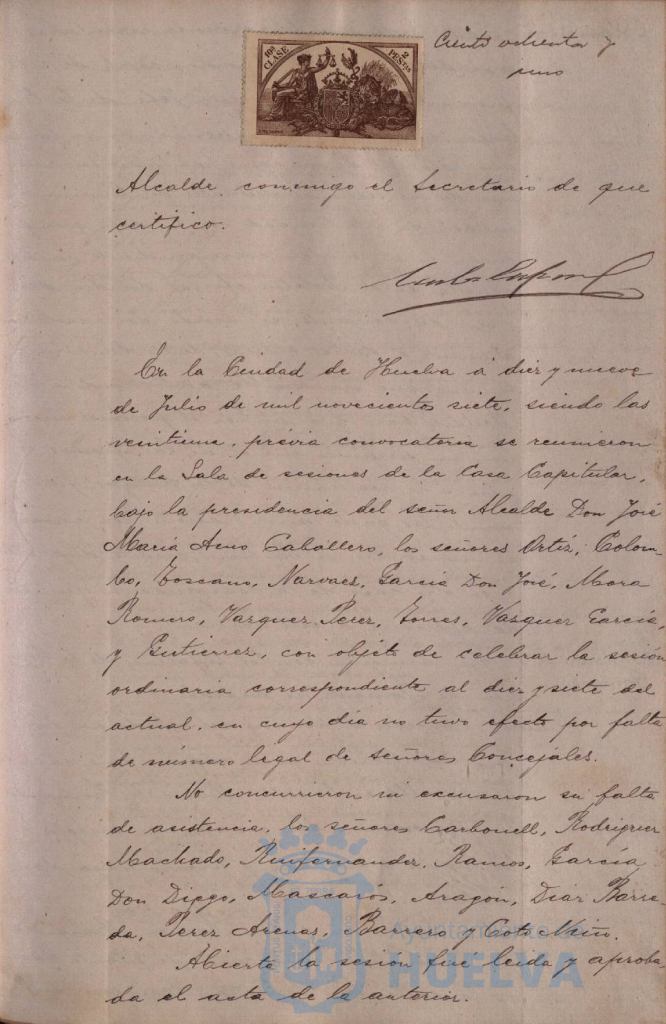 10ª CLASE 2 PESETAS
Ciento ochenta y
uno
Alcalde, conmigo el Secretario de que
certifico.
En la Ciudad de Huelva á diez y nueve
de Julio de mil novecientos siete, siendo las
veintiuna, prévia convocatoria se reunieron
en la Sala de sesiones de la Casa Capitular,
bajo la presidencia del señor Alcalde Don José
María Caballero, los señores Ortiz, Colom-
bo, Toscano, Narvaez, García Don José, Mora
Romero, Vazquez Perez, Torres, Vázquez García,
y Gutierrez, con objeto de celebrar la sesión
ordinaria correspondiente al diez y siete del
actual, en cuyo día no tuvo efecto por falta
de número legal de señores Concejales.
No concurrieron ni excusaron su falta
de asistencia, los señores Carbonell, Rodriguez
Machado, Ruifernandez, Ramos, García
Don Diego, Mascarós, Aragón, Diaz Barre-
da, Perez Arenas, Barrero y Coto
Abierta la sesión fué leida y aproba-
da el acta de la anterior.
Ayuntamiento de
HUELVA